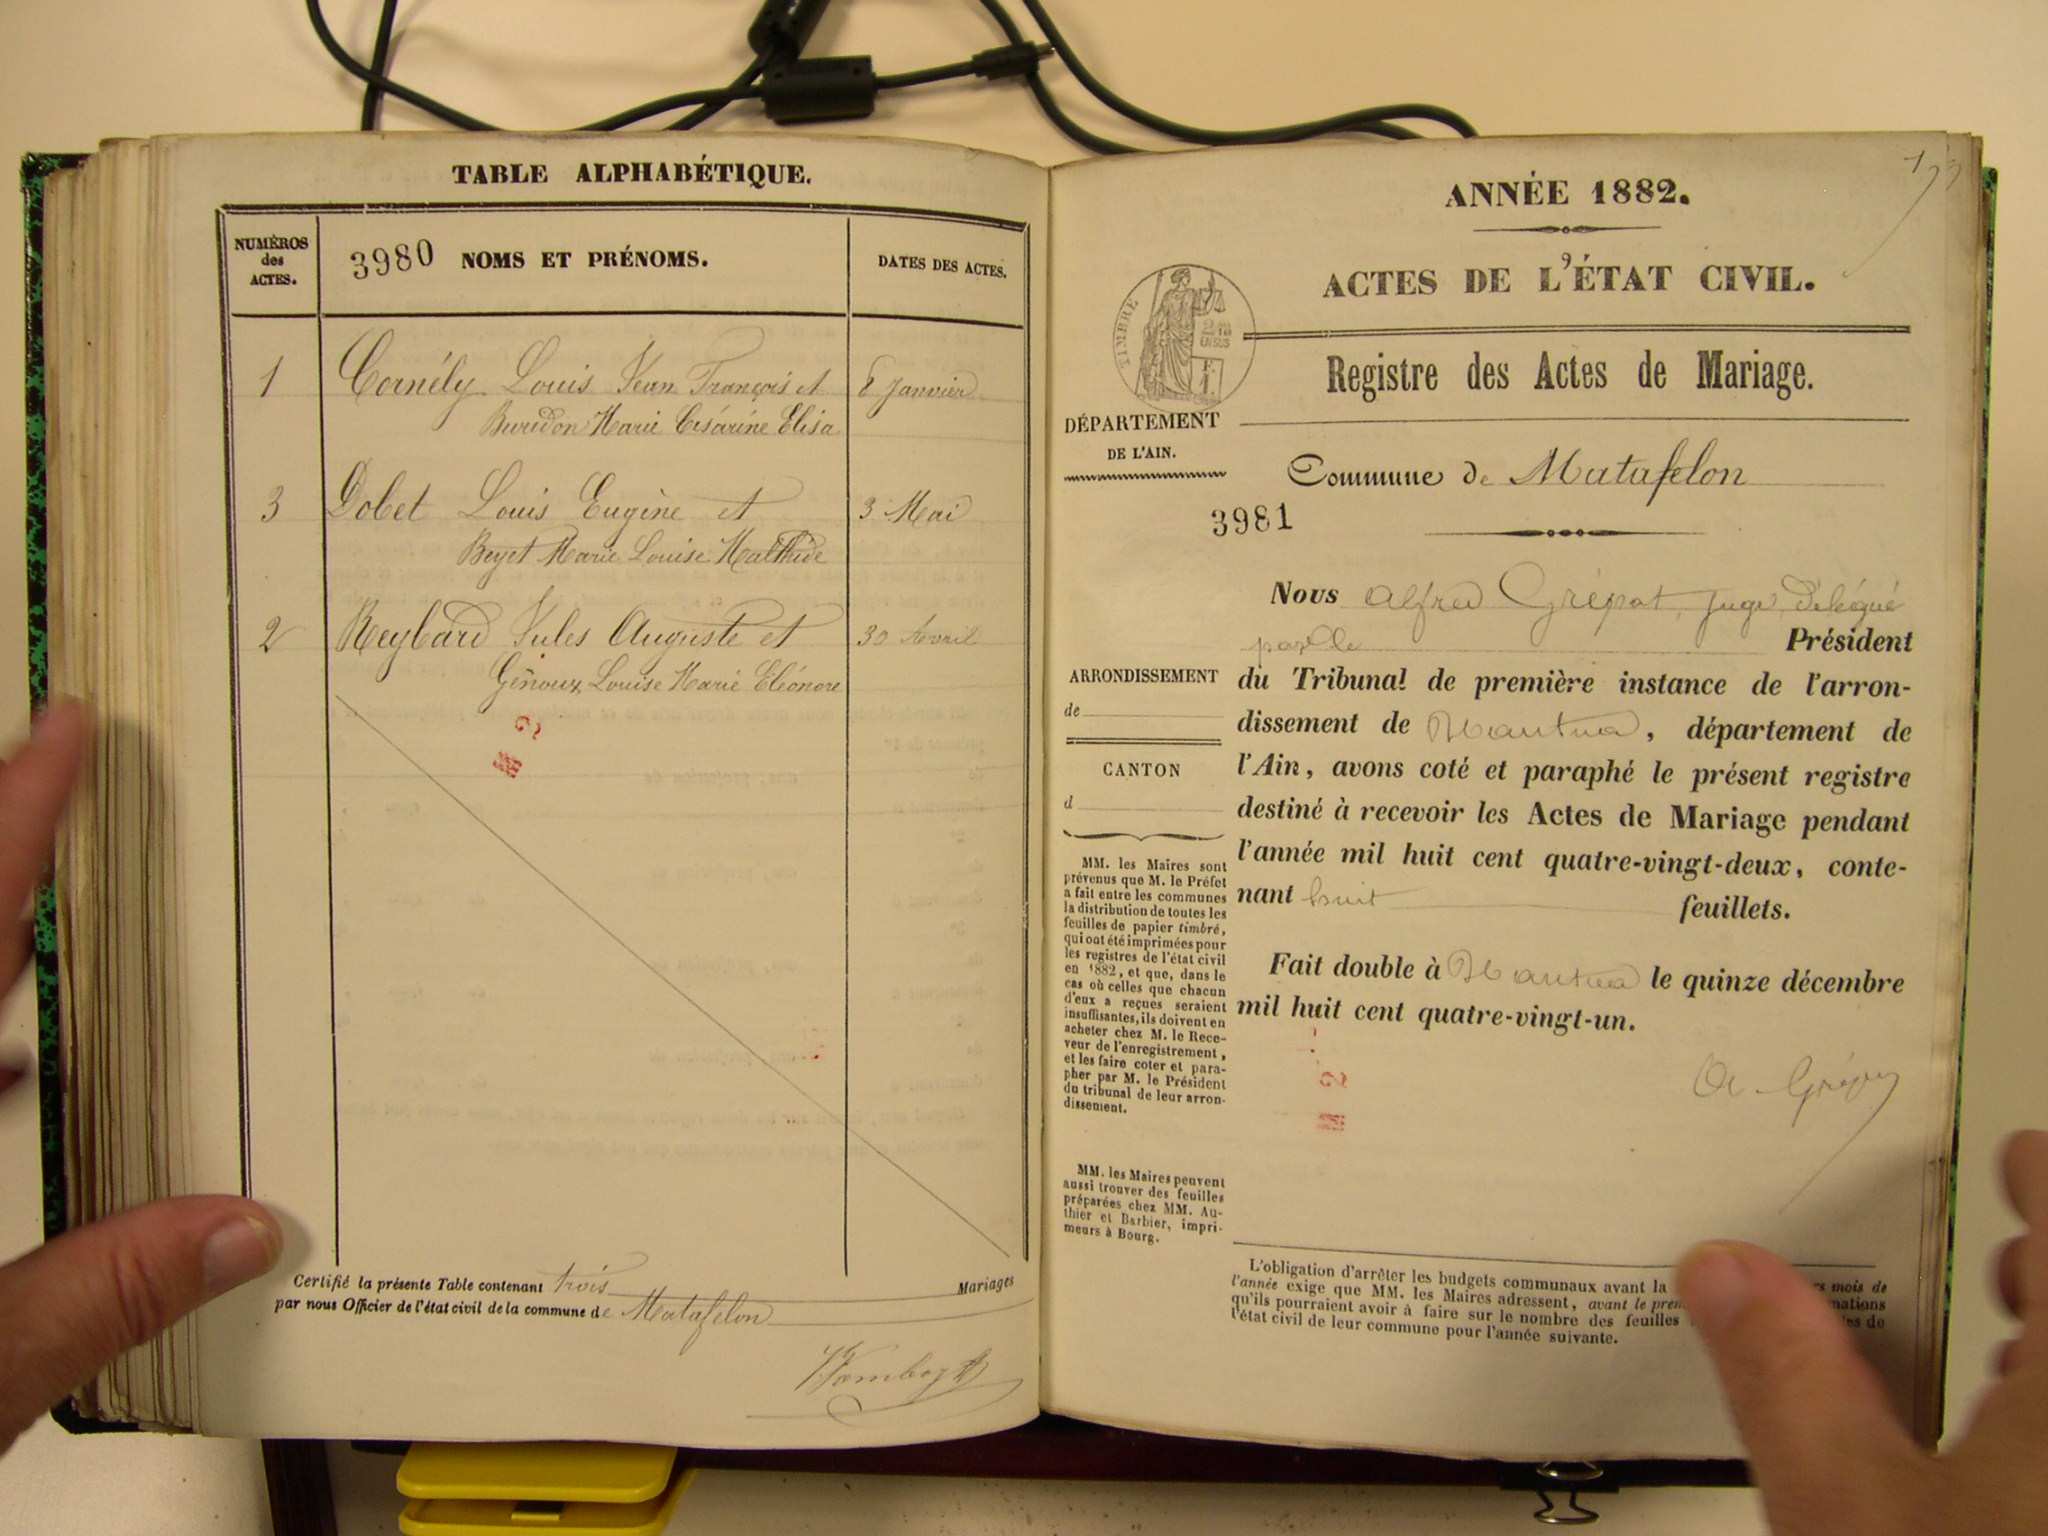 TABLE ALPHABÉTIQUE.
NUMÉROS
des
ACTES.
3980 NOMS ET PRÉNOMS.
DATES DES ACTES.
1 Cornély Louis Jean François et 8 Janvier
Marie Césarine Elisa
3 Dobet Louis Eugène et 3 Mai
Beyet Marie Louise Mathide
2 Reybard Jules Auguste et 30 Avril
Génoux Louise Marie Eléonore
Certifié la présente Table contenant trois Mariages
par nous Officier de l'état civil de la commune de Matafelon
ANNÉE 1882.
ACTES DE L'ÉTAT CIVIL.
TIMBRE
Registre des Actes de Mariage.
DÉPARTEMENT
DE L'AIN.
Commune de Matafelon
3981
Nous Alfred Grépat, juge, délégué
par le Président
du Tribunal de première instance de l'arron-
dissement de Nantua, département de
l'Ain, avons coté et paraphé le présent registre
destiné à recevoir les Actes de Mariage pendant
l'année mil huit cent quatre-vingt-deux, conte-
nant huit feuillets.
Fait double à Nantua le quinze décembre
mil huit cent quatre-vingt-un.
ARRONDISSEMENT
de
CANTON
d
MM. les Maires sont
prévenus que M. le Préfet
a fait entre les communes
la distribution de toutes les
feuilles de papier timbré,
qui ont été imprimées pour
les registres de l'état civil
en 1882, et que, dans le
cas où celles que chacun
d'eux a reçues seraient
insuffisantes, ils doivent en
acheter chez M. le Rece-
veur de l'enregistrement,
et les faire coter et para-
pher par M. le Président
du tribunal de leur arron-
dissement.
MM. les Maires peuvent
aussi trouver des feuilles
préparées chez MM. Au-
thier et Barbier, impri-
meurs à Bourg.
L'obligation d'arrêter les budgets communaux avant la rs mois de
l'année exige que MM. les Maires adressent, avant le prem mations
qu'ils pourraient avoir à faire sur le nombre des feuilles les de
l'état civil de leur commune pour l'année suivante.